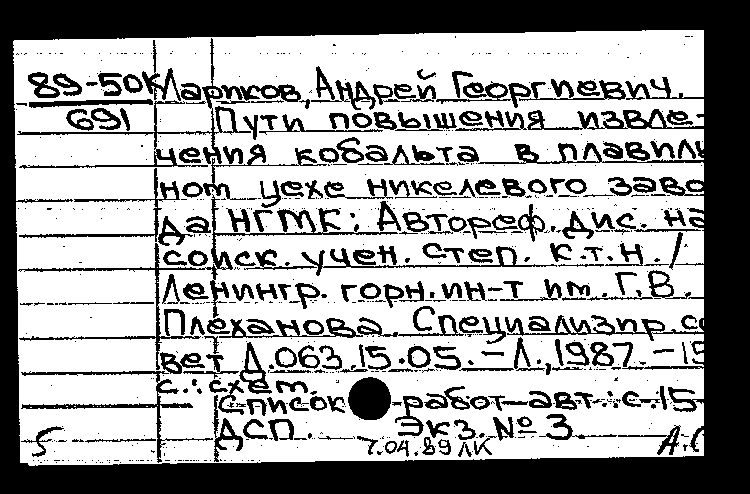 89-50К Лариков, Андрей Георгиевич.
691 Пути повышения извле-
чения кобальта в плавиль
ном цехе никелевого заво
да НГМК: Автореф. дис. на
соиск. учен. степ. к.т.н. /
Ленингр. горн. ин-т им. Г.В.
Плеханова. Специализир. со
вет Д.063.15.05. - Л., 1987. - 15
с.: схем.
Список работ авт.: с. 15
ДСП. Экз. № 3.
5 7.04.89 ЛК